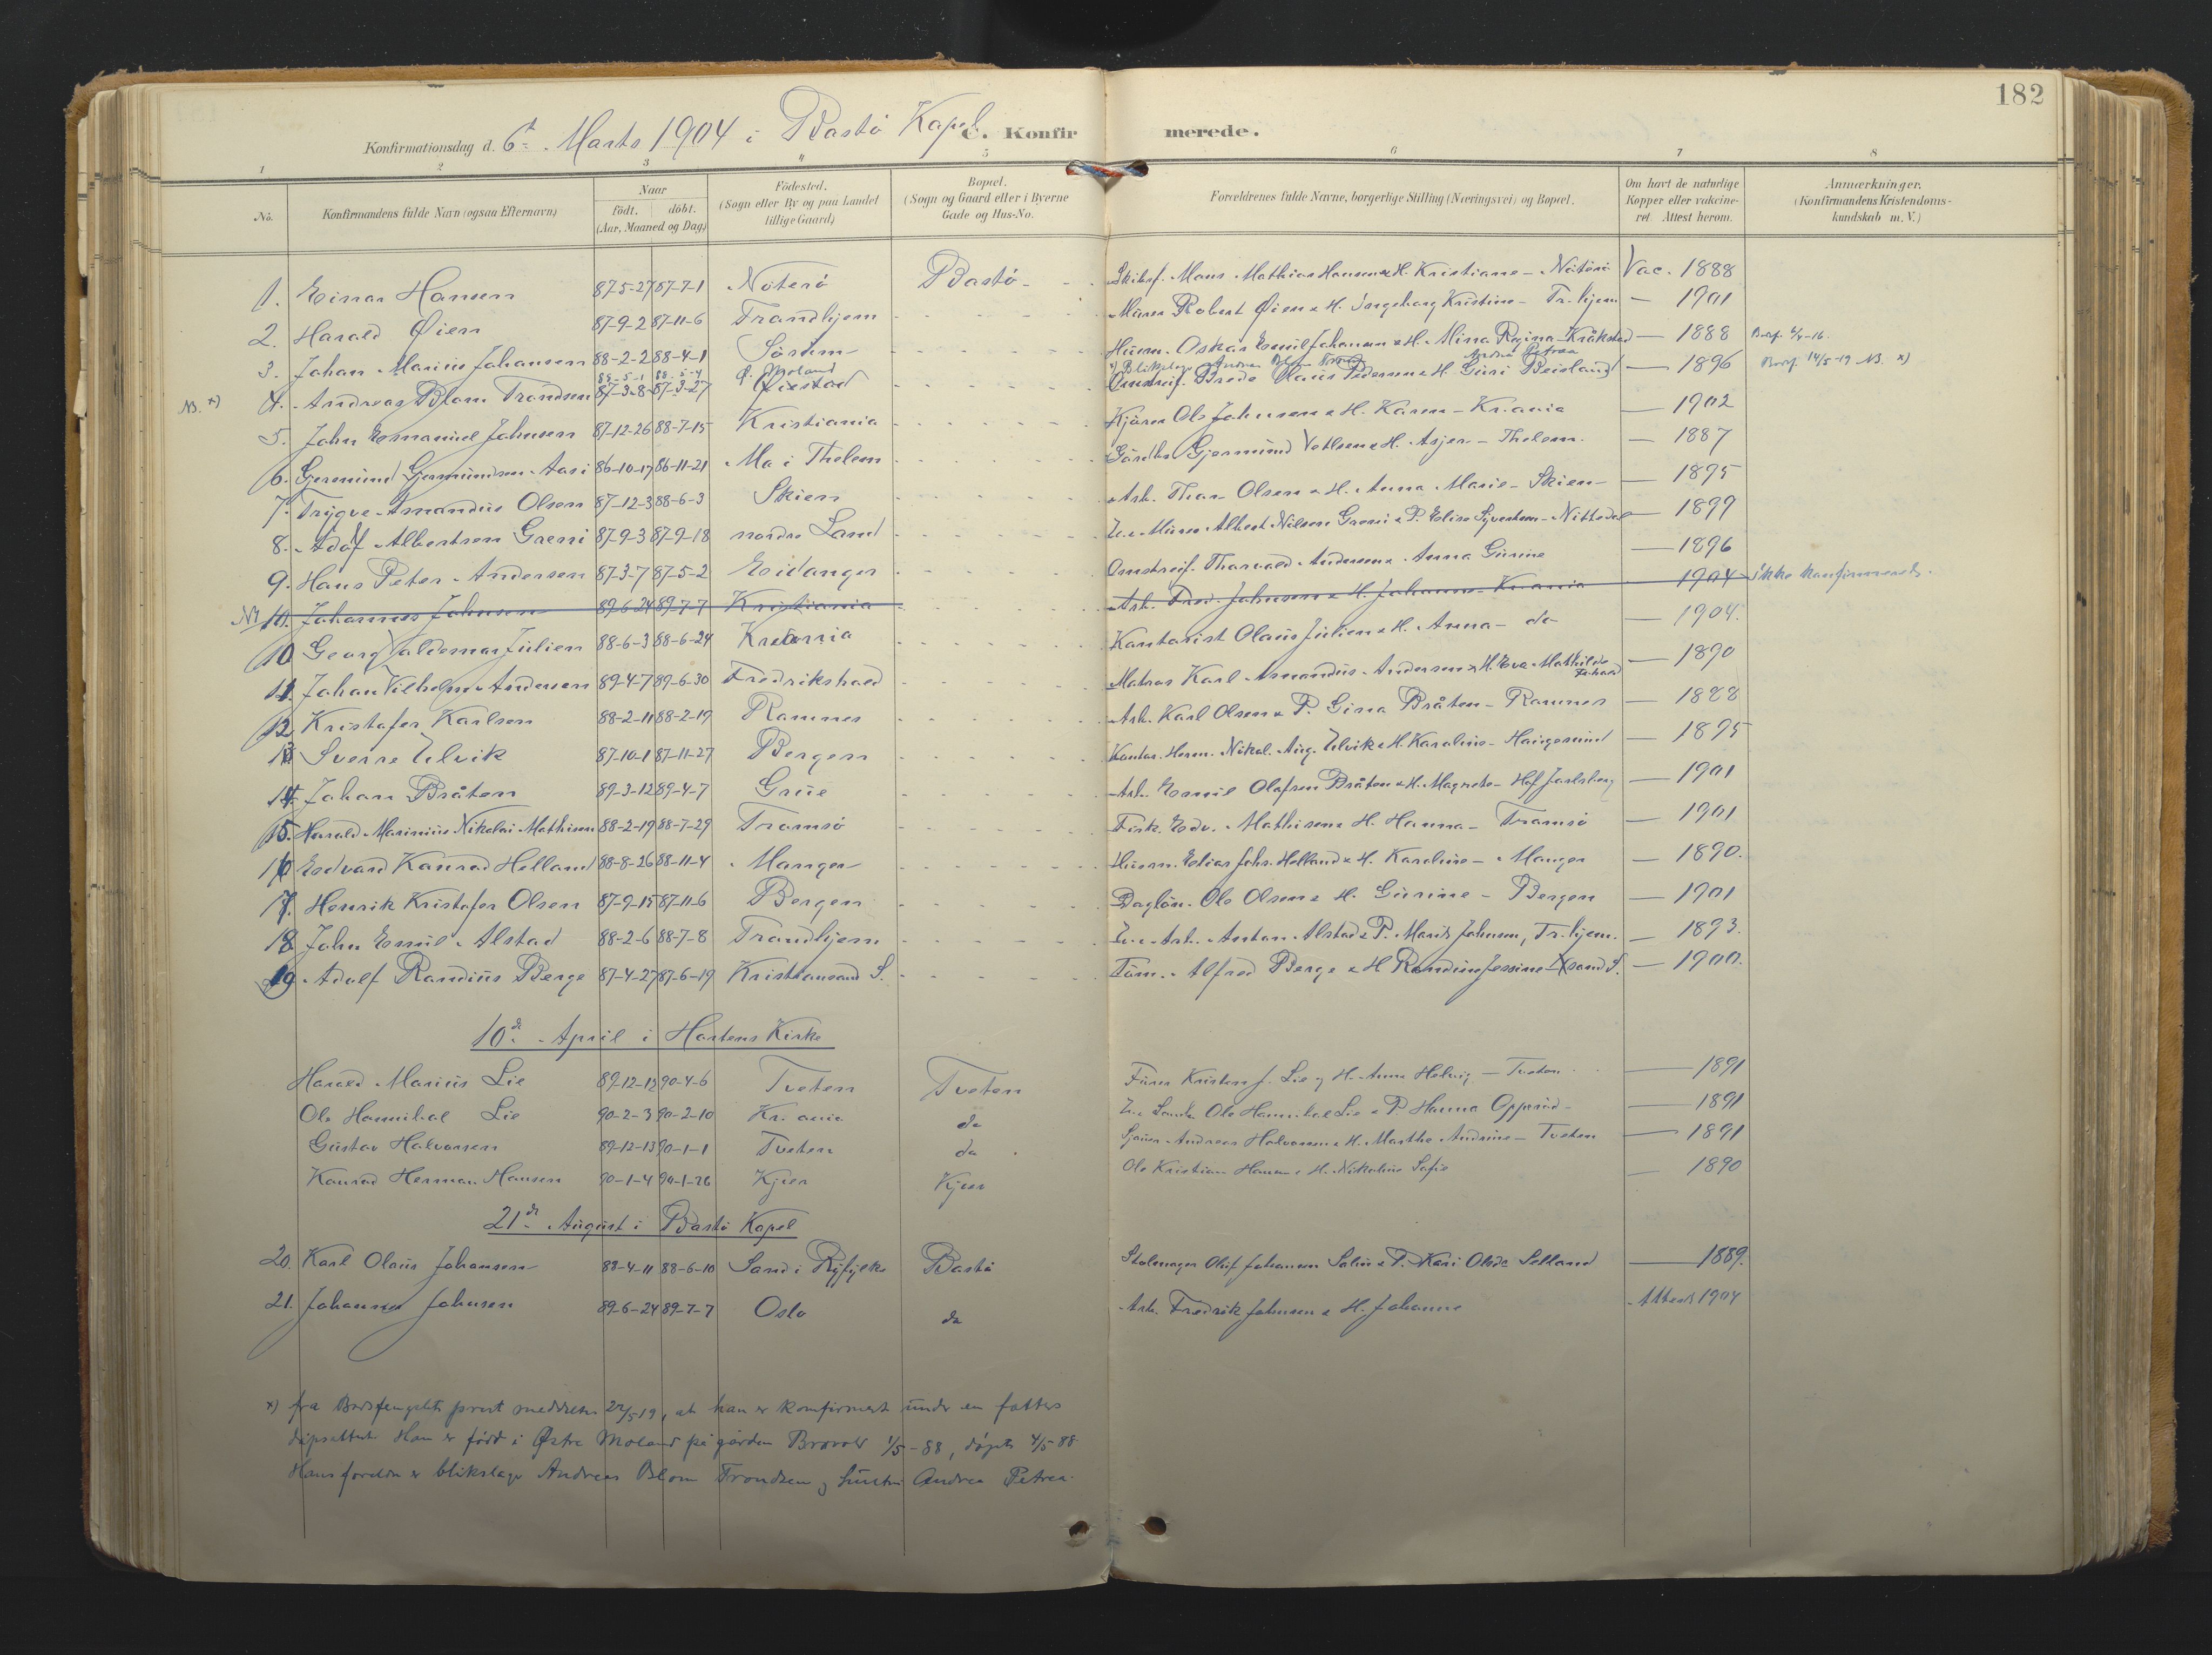 182
Konfirmationsdag d. 6te Marts 1904 i Bastö Kapel C. Konfirmerede.
1 2 3 4 5 6 7 8
No. Konfirmandens fulde Navn (ogsaa Efternavn) Naar födt. döbt. (Aar, Maaned og Dag) Födested. (Sogn eller By og paa Landet tillige Gaard) Bopæl. (Sogn og Gaard eller i Byerne Gade og Hus-No. Forældrenes fulde Navne, borgerlige Stilling (Næringsvei) og Bopæl. Om havt de naturlige Kopper eller vakcineret. Attest herom. Anmærkninger. (Konfirmandens Kristendomskundskab m. V.)
1. Einar Hansen 87-5-27 87-7-1 Nöterö Bastö Skibsf. Hans Mathias Hansen & H. Kristiane - Nöterö Vac. 1888
2. Harald Øien 87-9-2 87-11-6 Trondhjem Murer Robert Øien & H. Ingeborg Kristine - Tr.hjem — 1901
3. Johan Marius Johansen 88-2-2 88-4-1 Sörum Husm. Oskar Emil Johansen & H. Mina Regina Kråkstad — 1888
88-5-1 88-5-4 Ø. Moland x) Blikslager Andreas Blom Andrea Petrea
NB. x) 4. Andreas Blom Trondsen 87-3-8 87-3-27 Øiestad Omstreif. Brede Olaus Pedersen & H. Guri Beisland — 1896 Bodsf. 14/5-19 NB. x)
5. John Emanuel Johnsen 87-12-26 88-7-15 Kristiania Kjörer Ole Johnsen & H. Karen - Kr.ania — 1902
6. Gjermund Gjermundsen Aasi 86-10-17 86-11-21 Mo i Thelem Gårdbr. Gjermund Vetlesen & H. Asjer - Thelem. — 1887
7. Trygve Amandus Olsen 87-12-3 88-6-3 Skien Arb. Thor Olsen & H. Anna Marie - Skien — 1895
8. Adolf Albertsen Greni 87-9-3 87-9-18 nordre Land U.e. Murer Albert Nilsen Greni & P. Elise Syversen - Nittedal — 1899
9. Hans Peter Andersen 87-3-7 87-5-2 Eidanger Omstreif. Thorvald Andersen & Anna Gurine — 1896
10. Johannes Johnsen 89-6-24 89-7-7 Kristiania Arb. Fred. Johnsen & H. Johanne - Kr.ania 1904 ikke konfirmeret.
10 Georg Valdemar Julien 88-6-3 88-6-24 Kr.ania Kontorist Olaus Julien & H. Anna - do — 1904.
11. Johan Vilhelm Andersen 89-4-7 89-6-30 Fredrikshald Matros Karl Amandus Andersen & H. Eva Mathilde — 1890
12 Kristofer Karlsen 88-2-11 88-2-19 Ramnes Arb. Karl Olsen & P. Gina Bråten - Ramnes — 1888
13 Sverre Ulvik 87-10-1 87-11-27 Bergen Kontor. Herm. Nikol. Aug. Ulvik & H. Karoline - Haugesund — 1895
14 Johan Bråten 89-3-12 89-4-7 Grue Arb. Emil Olafsen Bråten & H. Magnete - Hof Jarlsberg — 1901
15. Harald Marinius Nikolai Mathisen 88-2-19 88-7-29 Tromsö Fisk. Edv. Mathisen & H. Hanna - Tromsö — 1901
16 Edvard Konrad Helland 88-8-26 88-11-4 Manger Husm. Elias Johs. Helland & H. Karoline - Manger — 1890.
17. Henrik Kristofer Olsen 87-9-15 87-11-6 Bergen Daglön. Ole Olsen & H. Gurine - Bergen — 1901
18 John Emil Alstad 88-2-6 88-7-8 Trondhjem U.e. Arb. Anton Alstad & P. Marit Johnsen, Tr.hjem. — 1893.
19. Adolf Randius Berge 87-4-27 87-6-19 Kristiansand S. Töm. Alfred Berge & H. Randine Jessine Xsand S. — 1900.
10de April i Hortens Kirke
Harald Marius Lie 89-12-12 90-4-6 Tveten Tveten Kristen J. Lie og H. Anna Helvig - Tveten — 1891
Ole Hannibal Lie 90-2-3 90-2-10 Kr.ania do Ole Hannibal Lie & P. Hanna Opprud — 1891
Gustav Halvorsen 89-12-13 90-1-1 Tveten do Andreas Halvorsen & H. Marthe Andrine - Tveten — 1891
Konrad Herman Hansen 90-1-4 90-1-26 Kjær Kjær Ole Kristian Hansen & H. Nikoline Sofie — 1890
21de August i Bastö Kapel
20. Karl Olaus Johansen 88-4-11 88-6-10 Sand i Ryfylke Bastö Stolmager Oluf Johansen Salin & P. Kari Olsdr Selland — 1889.
21. Johannes Johnsen 89-6-24 89-7-7 Oslo do Arb. Fredrik Johnsen & H. Johanne Attest 1904
x) fra Bodsfengslets prest meddeles 22/5-19, at han er konfirmert under en fatters
dåpsattest. Han er född i Østre Moland på gården 1/5-88, döpt 4/5-88
Hans foreldre er blikslager Andreas Blom Trondsen og hustru Andrea Petrea.